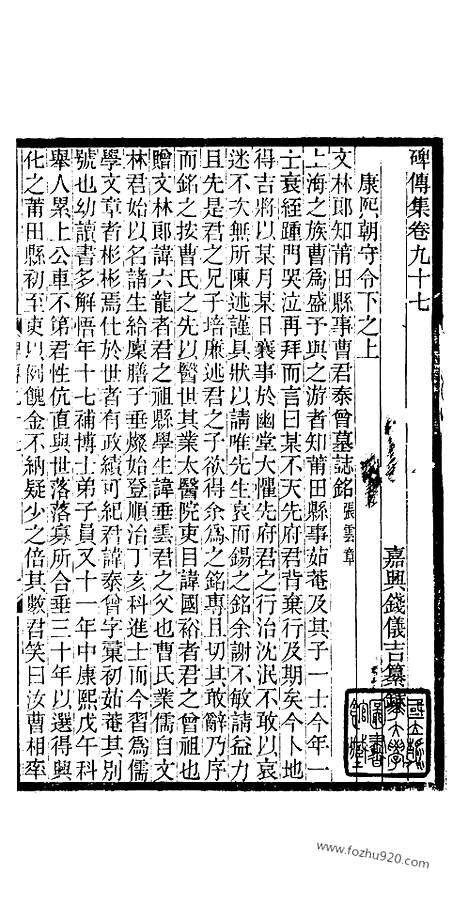 碑傳集卷九十七
嘉興錢儀吉纂錄
康熙朝守令下之上
文林郎知莆田縣事曹君泰曾墓誌銘 張雲章
上海之族曹爲盛予與之游者知莆田縣事茹菴及其子一士今年一
士衰絰踵門哭泣再拜而言曰某不天先府君背棄行及期矣今卜地
得吉將以某月某日襄事於幽堂大懼先府君之行治沈泯不敢以哀
迷不次無所陳述謹具狀以請唯先生哀而錫之銘余謝不敏請益力
且先是君之兄子培廉述君之子欲得余爲之銘專且切其敢辭乃序
而銘之按曹氏之先以醫世其業太醫院吏目諱國裕者君之曾祖也
贈文林郎諱六龍者君之祖縣學生諱垂雲君之父也曹氏業儒自文
林君始以名諸生給廩膳子垂燦始登順治丁亥科進士而今習爲儒
學文章者彬彬焉仕於世者有政績可紀君諱泰曾字彙初茹菴其別
號也幼讀書多解悟年十七補博士弟子員又十一年中康熙戊午科
舉人累上公車不第君性伉直與世落落寡所合垂三十年以選得興
化之莆田縣初至吏以例餽金不納疑少之倍其數君笑曰汝曹相率
www.fozhu920.com